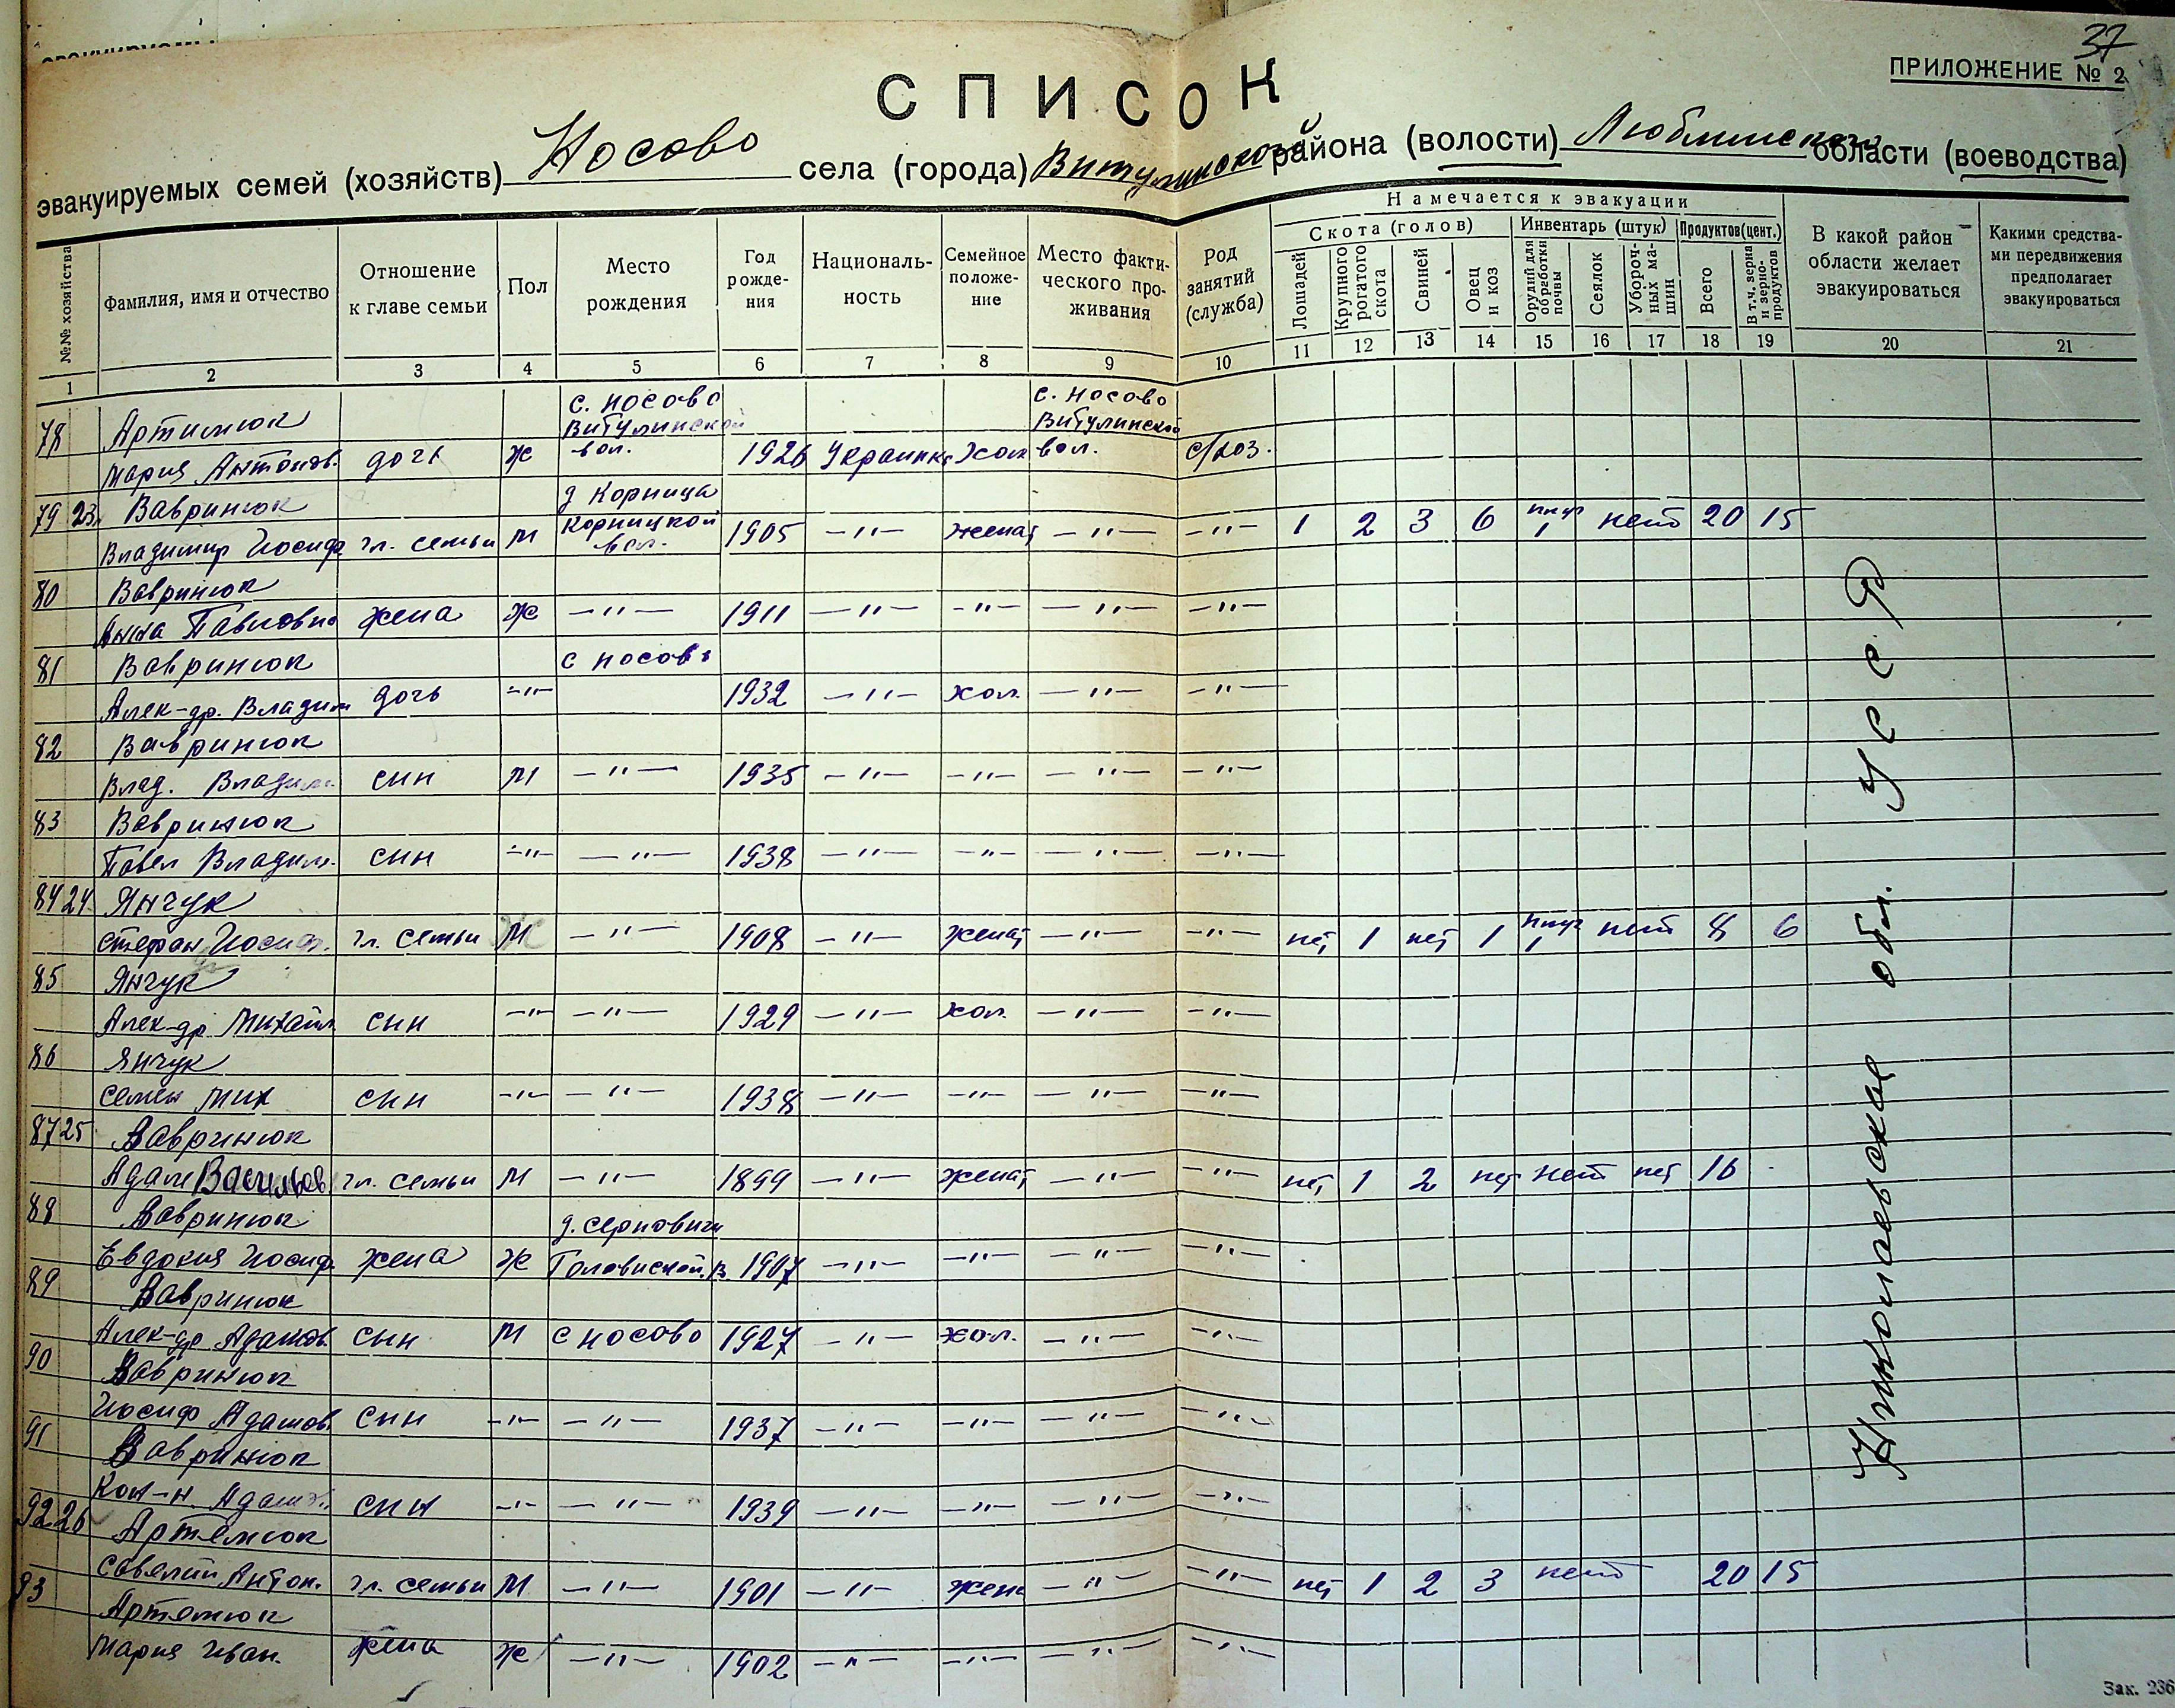 37
ПРИЛОЖЕНИЕ № 2
СПИСОК
эвакуируемых семей (хозяйств) Носово села (города) Витулинской района (волости) Люблинского области (воеводства)
№№ хозяйства
Фамилия, имя и отчество
Отношение к главе семьи
Пол
Место рождения
Год рожде-ния
Националь-ность
Семейное положе-ние
Место факти-ческого про-живания
Род занятий (служба)
Намечается к эвакуации
Скота (голов)
Инвентарь (штук)
Продуктов (цент.)
Лошадей
Крупного рогатого скота
Свиней
Овец и коз
Орудий для обработки почвы
Сеялок
Убороч-ных ма-шин
Всего
В т. ч. зерна и зерно-продуктов
В какой район области желает эвакуироваться
Какими средства-ми передвижения предполагает эвакуироваться
1 2 3 4 5 6 7 8 9 10 11 12 13 14 15 16 17 18 19 20 21
78 Артимюк с. Носово Витулинской с. Носово Витулинской
Мария Антонов. дочь Ж вол. 1926 Украинка хол вол. с/хоз.
79 23. Вавринюк д Корница
Владимир Иосиф гл. семьи М Корницкой вол. 1905 —"— женат —"— —"— 1 2 3 6 плуг 1 нет 20 15
80 Вавринюк
Анна Павловна жена Ж —"— 1911 —"— —"— —"— —"—
81 Вавринюк с Носово
Алек-др. Владим дочь —"— 1932 —"— хол. —"— —"—
82 Вавринюк
Влад. Владим. син М —"— 1935 —"— —"— —"— —"—
83 Вавринюк
Павел Владим. син —"— —"— 1938 —"— —"— —"— —"—
84 24. Янчук
Стефан Иосиф. гл. семьи М —"— 1908 —"— женат —"— —"— нет 1 нет 1 плуг 1 нет 8 6
85 Янчук
Алек-др Михайл син —"— —"— 1929 —"— хол. —"— —"—
86 Янчук
Семен Мих син —"— —"— 1938 —"— —"— —"— —"—
87 25 Вавринюк
Адам Васильев. гл. семьи М —"— 1899 —"— женат —"— —"— нет 1 2 нет нет нет 16
88 Вавринюк д. Серповичи
Евдокия Иосиф. жена Ж 1907 —"— —"— —"— —"—
89 Вавринюк
Алек-др Адамов. син М с Носово 1927 —"— хол. —"— —"—
90 Вавринюк
Иосиф Адамов. син —"— —"— 1937 —"— —"— —"— —"—
91 Вавринюк
Кон-н Адам син —"— —"— 1939 —"— —"— —"— —"—
92 26 Артемюк
Савелий Антон. гл. семьи М —"— 1901 —"— жена —"— —"— нет 1 2 3 нет 20 15
93 Артемюк
Мария Иван. жена Ж —"— 1902 —"— —"— —"— —"—
Николаевская обл. УССР
Зак. 236